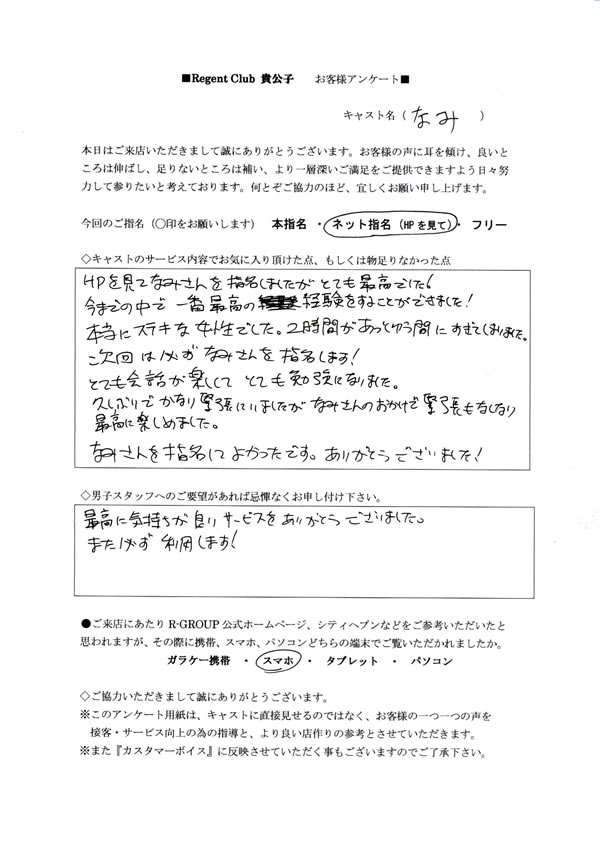 ■Regent Club 貴公子　お客様アンケート■
キャスト名（ なみ ）
本日はご来店いただきまして誠にありがとうございます。お客様の声に耳を傾け、良いと
ころは伸ばし、足りないところは補い、より一層深いご満足をご提供できますよう日々努
力して参りたいと考えております。何とぞご協力のほど、宜しくお願い申し上げます。
今回のご指名（〇印をお願いします） 本指名 ・ ネット指名（HPを見て）・ フリー
◇キャストのサービス内容でお気に入り頂けた点、もしくは物足りなかった点
HPを見てなみさんを指名しましたがとても最高でした!
今までの中で一番最高の経験をすることができました!
本当にステキな女性でした。2時間があっとゆう間にすぎてしまいました。
次回は必ずなみさんを指名します!
とても会話が楽しくて とても勉強になりました。
久しぶりでかなり緊張していましたがなみさんのおかげで緊張もなくなり
最高に楽しめました。
なみさんを指名してよかったです。ありがとうございました!
◇男子スタッフへのご要望があれば忌憚なくお申し付け下さい。
最高に気持ちが良いサービスをありがとうございました。
また必ず利用します!
●ご来店にあたり R-GROUP 公式ホームページ、シティヘブンなどをご参考いただいたと
思われますが、その際に携帯、スマホ、パソコンどちらの端末でご覧いただかれましたか。
ガラケー携帯 ・ スマホ ・ タブレット ・ パソコン
◇ご協力いただきまして誠にありがとうございます。
※このアンケート用紙は、キャストに直接見せるのではなく、お客様の一つ一つの声を
接客・サービス向上の為の指導と、より良い店作りの参考とさせていただきます。
※また『カスタマーボイス』に反映させていただく事もございますのでご了承下さい。